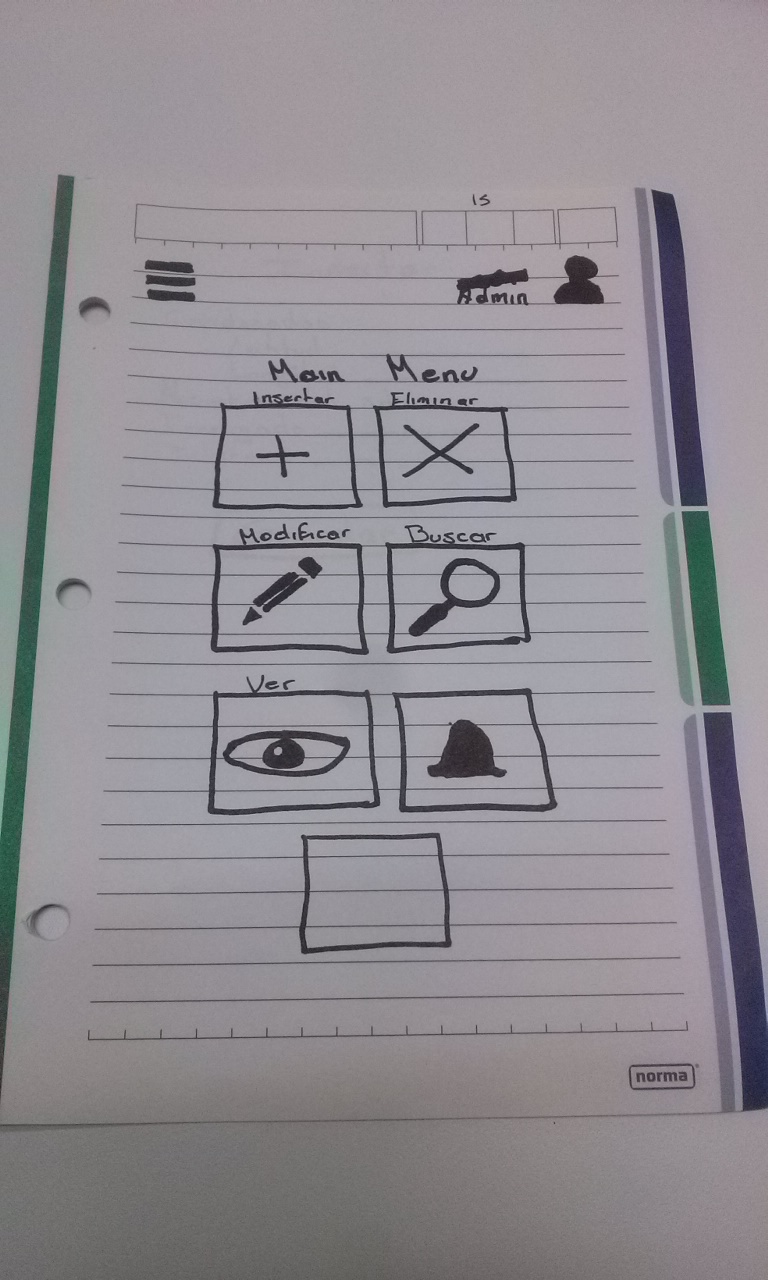 15
Admin
Main Menu
Insertar Eliminar
Modificar Buscar
Ver
norma